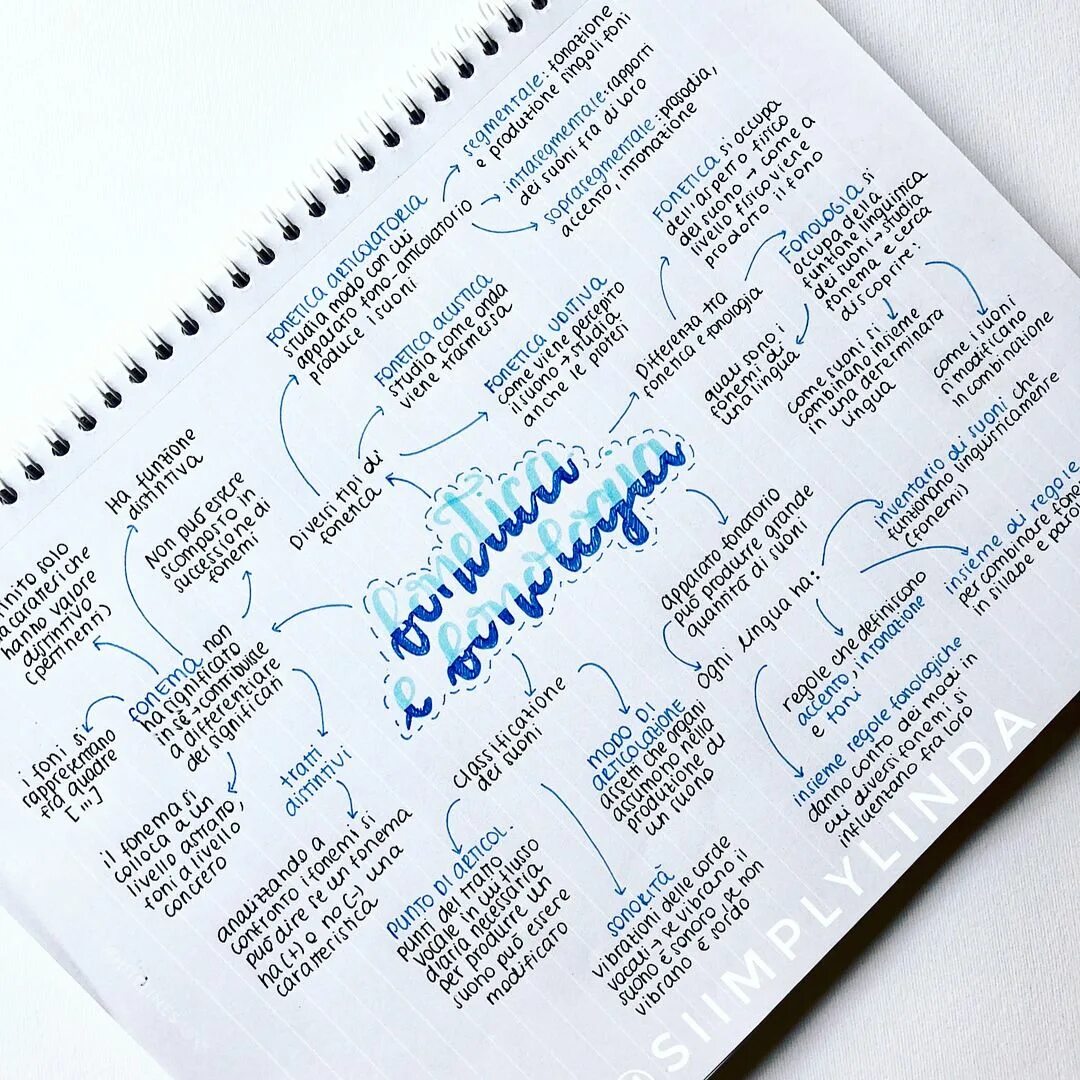 fonetica
e fonologia
Diversi tipi di
fonetica
FONETICA ARTICOLATORIA
studia modo con cui
apparato fono-articolatorio
produce i suoni
segmentale: fonazione
e produzione singoli foni
intrasegmentale: rapporti
dei suoni fra di loro
soprasegmentale: prosodia,
accento, intonazione
FONETICA ACUSTICA
studia come onda
viene trasmessa
FONETICA UDITIVA
come viene percepito
il suono → studia
anche le protesi
Differenza tra
fonetica e fonologia
FONETICA si occupa
dell'aspetto fisico
del suono → come a
livello fisico viene
prodotto il fono
FONOLOGIA si
occupa della
funzione linguistica
dei suoni → studia
fonema e cerca
di scoprire:
quali sono i
fonemi di
una lingua
come suoni si
combinano insieme
in una determinata
lingua
come i suoni
si modificano
in combinazione
apparato fonatorio
può produrre grande
quantità di suoni
Ogni lingua ha:
inventario di suoni che
funzionano linguisticamente
(fonemi)
insieme di regole
per combinare fone
in sillabe e parole
regole che definiscono
accento, intonazione
e toni
insieme regole fonologiche
danno conto dei modi in
cui diversi fonemi si
influenzano fra loro
classificazione
dei suoni
MODO DI
ARTICOLAZIONE
assetti che organi
assumono nella
produzione di
un suono
SONORITÀ
vibrazioni delle corde
vocali → se vibrano il
suono è sonoro, se non
vibrano è sordo
PUNTO DI ARTICOL.
punti del tratto
vocale in cui flusso
d'aria necessaria
per produrre un
suono può essere
modificato
FONEMA non
ha significato
in sé → contribuise
a differentiare
dei significati
Ha funzione
distintiva
Non può essere
scomposto in
successione di
fonemi
inito solo
da caratteri che
hanno valore
distintivo
(pertinenti)
i foni si
rappresentano
fra quadre
[ ... ]
il fonema si
colloca a un
livello astratto,
foni a livello
concreto
tratti
distintivi
analizzando a
confronto i fonemi si
può dire se un fonema
ha (+) o no (-) una
caratteristica
@SIIMPLYLINDA